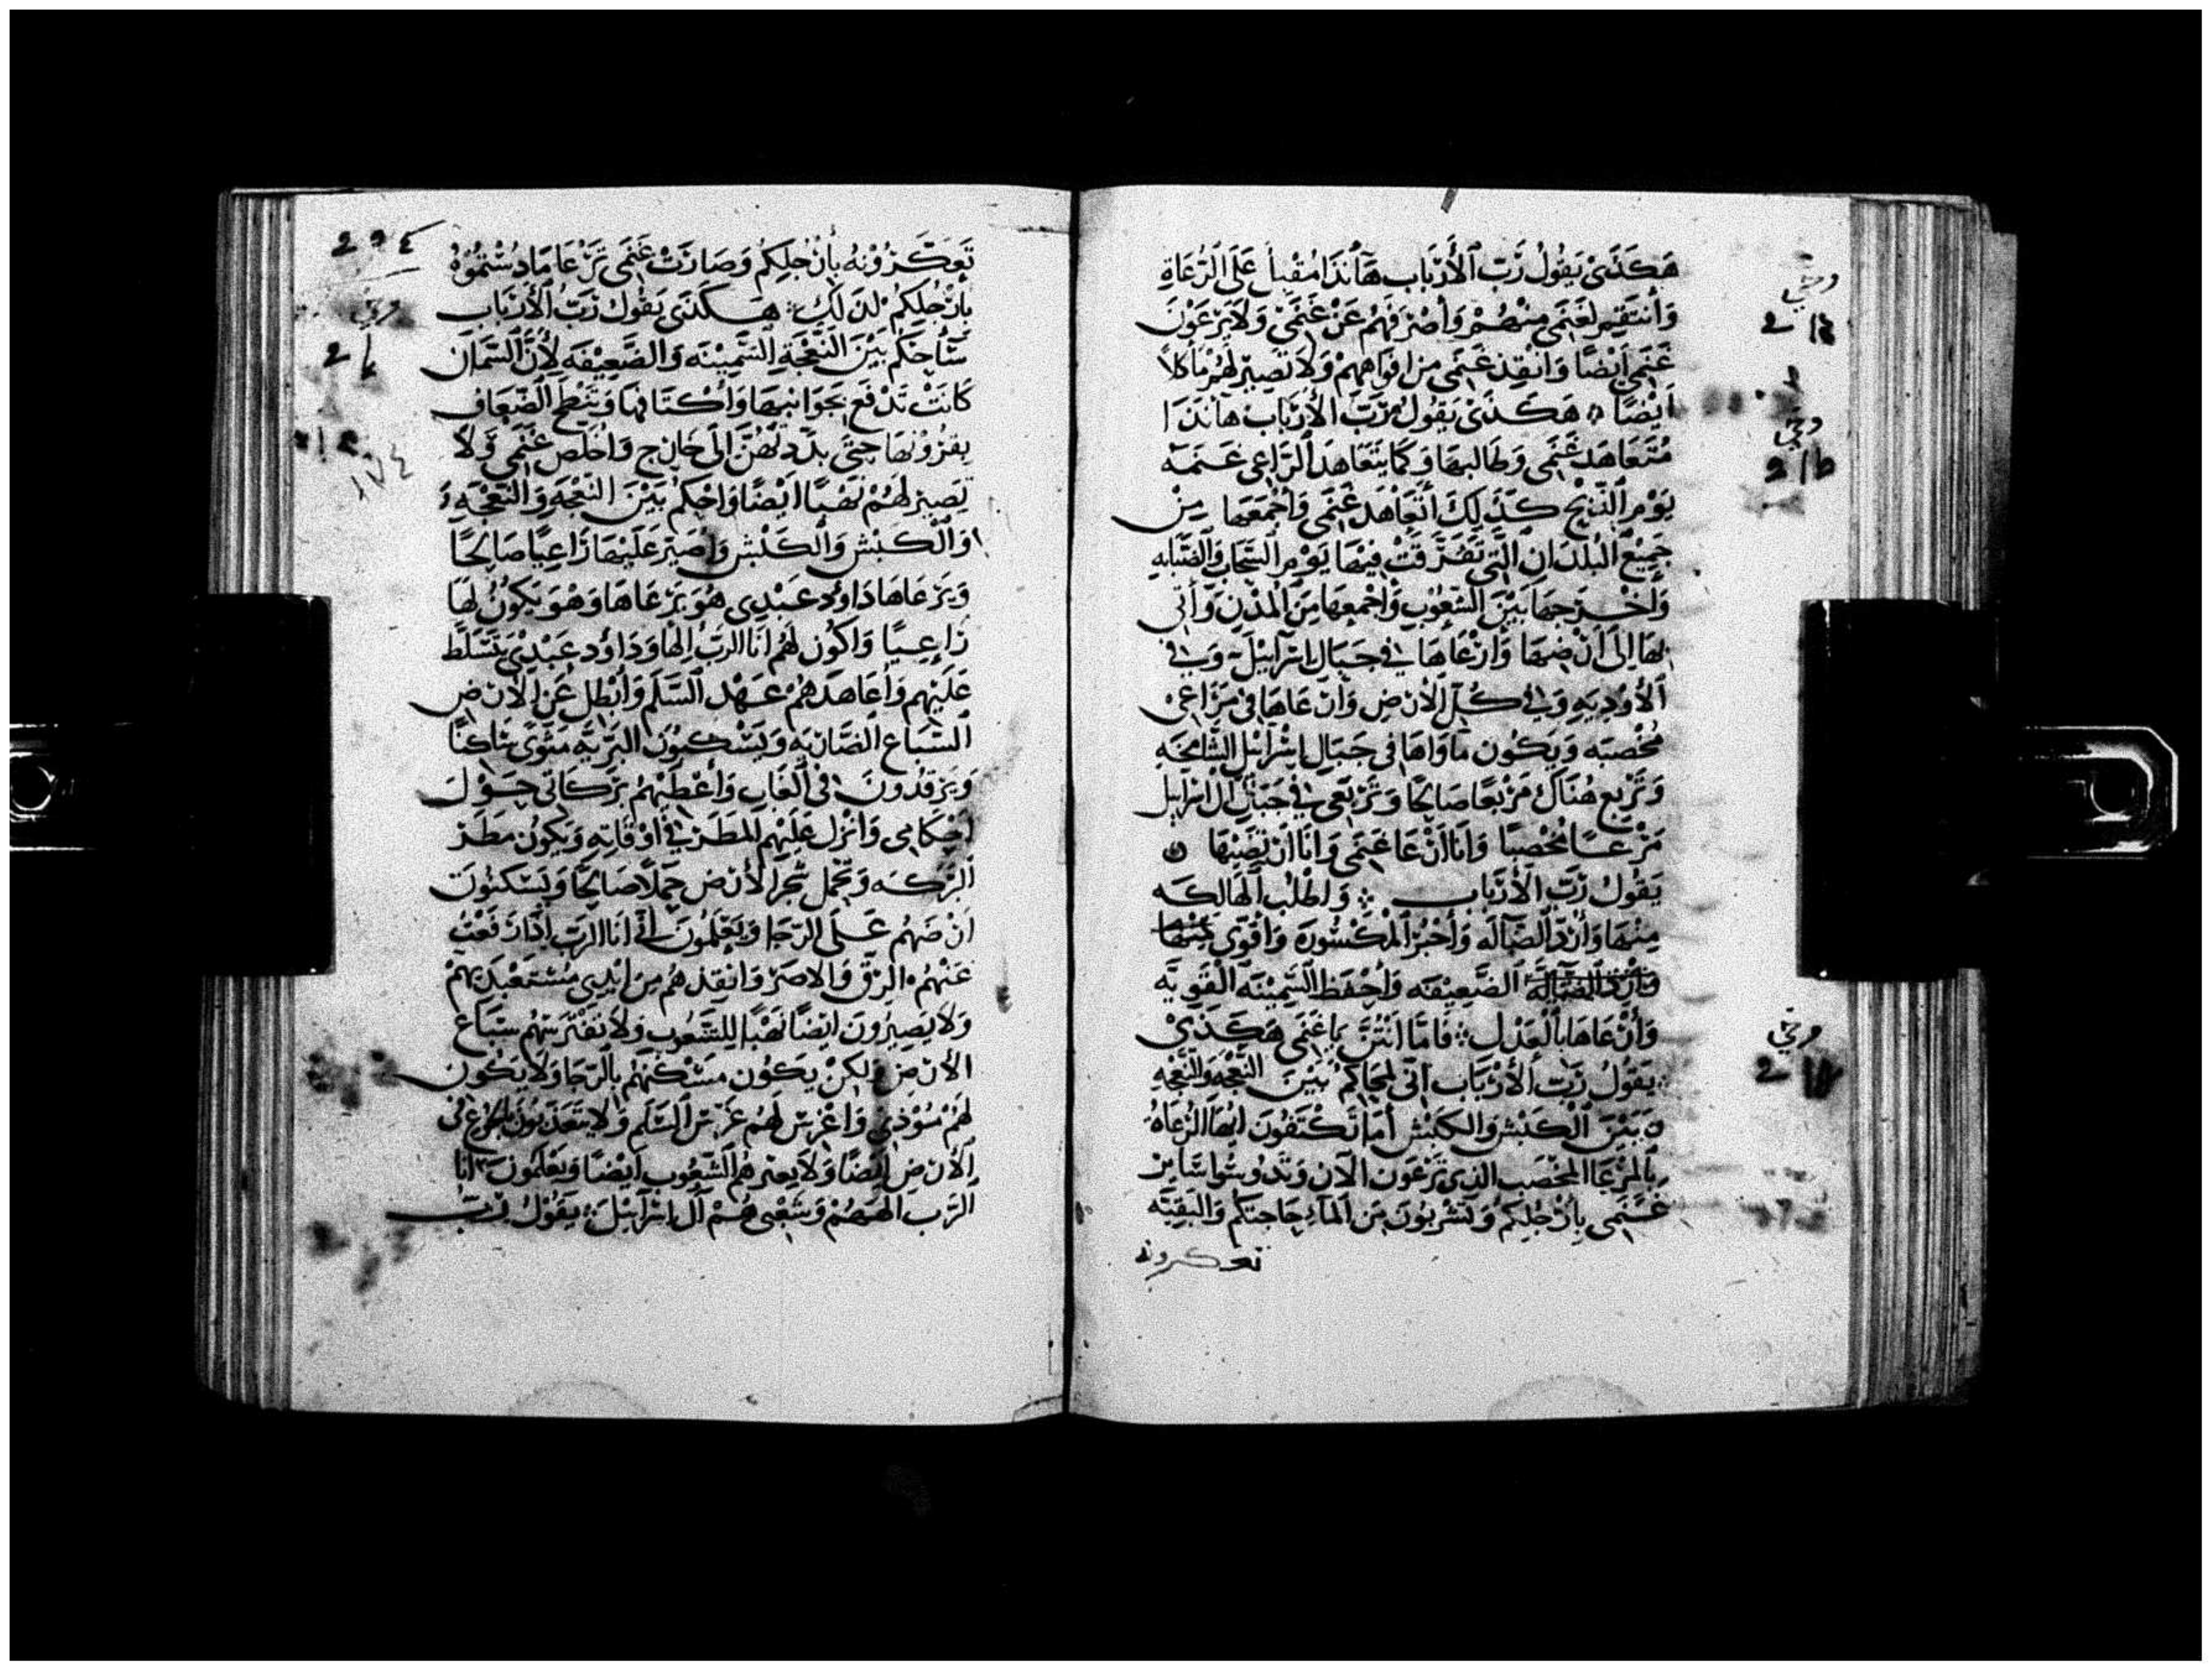 هَكَذَى يَقُولُ رَبّ ٱلأَرْبَاب هَأَنَذَا مُقْبِلٌ عَلَى الرُعَاةِ
وَأَنتَقِم لِغَنَمِى مِنْهُمْ وَأَصْرِفهُمْ عَنْ غَنَمِى وَلَا يَرْعَوْنَ
غَنَمِى أَيْضًا وَأُنْقِذ غَنَمِى مِن افوَاهِهِمْ وَلَا تَصِيرْ لَهُمْ مَأكلًا
أَيْضًا هَكَذَى يَقُولُ رَبّ الأَرْبَاب هَأَنَذَا
مُتَعَاهَد غَنَمِى وَطَالبهَا وَكَمَا يَتَعَاهَد ٱلرَّاعِى غَنَمَه
يَوْم ٱلرِّيْحِ كَذَلِكَ أَتَعَاهَد غَنَمِى وَأَجْمَعَهَا مِنْ
جَمِيْعِ البُلدَانِ الَّتِى تَفَرَّقَتْ فِيْهَا يَوْم ٱلسَّحَاب وَٱلضَّبَابِه
وَأُخْرِجهَا بَيْنَ الشّعُوْبِ وَأَجْمعهَا مِنَ المُدْنِ وَآتِى
بهَا إِلَى أَرْضِهَا وَأَرْعَاهَا فِى جِبَال إِسْرَآئِيْلَ وَفِى
ٱلأَوْدِيَهِ وَفِى كُلِّ الأَرْضِ وَأَرْعَاهَا فِى مَرَاعِى
مُخْصِبَه وَيَكُون مَأوَاهَا فِى جِبَال إِسْرَائِيْل الشَّامِخَه
وَتَرْبع هُنَاكَ مَرْبعًا صَالِحًا وَتَرْتَعِى فِى جِبَال آل اسرَايل
مَرْعًا مُخْصبًا وَأَنَا أَرْعَا غَنَمِى وَأَنَا أُرْبِضهَا
يَقُولُ رَبّ الأَرْبَاب وَأطلُب ٱلهَالكَه
مِنْهَا وَأَرُدّ ٱلضَّآلَه وَأجْبُر ٱلمَكْسُورَه وَأُقَوِّى مِنْهَا
وَأَرُدّ الضَّالَه الضَّعِيْفَه وَأَحْفَظ السَّمِيْنَه القَويَّه
وَأَرْعَاهَا بِٱلعَدْل فَامَّا انْتُنَّ يَا غَنَمِى هَكَذَىْ
يَقُولُ رَبّ ٱلأَرْبَاب أَنِّى أُحَاكِم بَيْنَ النَّعْجَه وَالنَّعْجَه
وَبَيْنَ ٱلكَبْشِ وَالكَبْش أَمَا تَكْتَفُونَ أَيُّهَا الرُّعَاهُ
بِالمَرْعَا المُخْصَب الَّذِى تَرْعَون الآن وَتَدُوسُوا سَايِرْ
غَنَمِى بِأَرْجُلِكُم وَتَشْرَبُونَ مِنَ ٱلمَآءِ حَاجَتكُم وَالبَقِيَّه
تعكرونه
294
تَعَكّرُوْنهُ بِأَرْجُلِكُم وَصَارَتْ غَنَمِى تَرْعَا مَا دُسْتُمُوْهُ
بأَرْجُلِكُمْ لذَلِكَ هَكَذَى يَقُولُ رَبّ ٱلأَرْبَاب
سَأَحْكُم بَيْنَ النَّعْجَةِ السَّمِيْنَه وَالضَّعِيْفَه لأَنَّ السّمَان
كَانَتْ تَدْفَع بِجَوَانبهَا وَأَكْتَافهَا وَتَنْطَح الضّعَاف
بِقرُوْنهَا حَتَّى بدّدتْهُنَّ إِلَى خَارِج وَأُخَلِّص غَنَمِى وَلَا
تَصِير لَهُمْ نَهْبًا أَيْضًا وَأَحْكم بَيْنَ النَّعْجَه وَالنَّعْجَه
وَٱلكَبْش وَٱلكَبْش وَأُصَيِّر عَلَيْهَا رَاعِيًا صَالِحًا
وَيَرْعَاهَا دَاوُد عَبْدِى هُوَ يَرْعَاهَا وَهُوَ يَكُوْنُ لَهَا
رَاعِيًا وَأَكُون لَهُم أَنَا الرَّبّ إِلهًا وَدَاوُد عَبْدِىْ يَتَسَلَّطُ
عَلَيْهِم وَأُعَاهِدهُمْ عَهْد ٱلسَّلَم وَأُبْطِل عَن الأَرْضِ
ٱلسّبَاع الضَّارِيَه وَيَسْكنُوْنَ البَرِّيَّه مَثْوَى سَاكنًا
وَيَرْقدُونَ فِى ٱلغَابِ وَأُعْطِيْهُمْ بَرَكَاتِى حَوْلَ
أَحْكَامِى وَأُنْزل عَلَيْهِم المَطَر فِى أَوْقَاتِهِ وَيَكُون مَطَر
ٱلبَرَكَه وَتَحْمِل شَجَر الأَرْض حَمْلًا صَالِحًا وَيَسْكنُوْنَ
أَرْضَهُم عَلَى الرَّجَا وَيَعْلَمُوْنَ أَنِّى أَنَا الرَّبّ إِذَا رَفَعْتُ
عَنْهُم الرِّقّ وَالاصر وَأُنْقِذهُم مِنَ ايْدِى مُسْتَعْبدِيْهِمْ
وَلَا يَصِيْرُوْنَ أَيْضًا نَهْبًا لِلشّعُوْب وَلَا تَفْتَرِسهُم سِبَاع
الأَرْض وَلكِنْ يَكُون مَسْكَنهُم بِالرَّجَا وَلَا يَكُون
لَهُمْ مُؤْذِى وَأَغْرِس لَهُم غَرْس ٱلسَّلَم وَلَا يَتَعَذَّبُوْنَ بِٱلجُوْع فِى
الأَرْضِ أَيْضًا وَلَا يُعيّرهُم الشّعُوب أَيْضًا وَيَعْلَمُوْنَ أَنَا
الرَّب إِلهَهُمْ وَشَعْبِى هُمْ آلَ إِسْرَآئِيْلَ يَقُولُ رَبّ